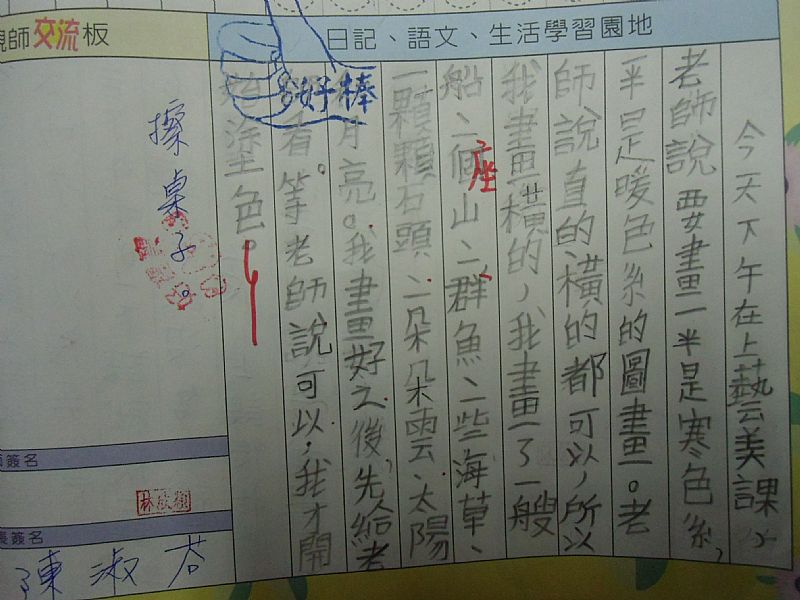 親師交流板
日記、語文、生活學習園地
今天下午在上藝美課，
老師說要畫一半是寒色系，
一半是暖色系的圖畫。老
師說直的橫的都可以，所以
我畫橫的，我畫了一艘
船、一個山、一群魚、一些海草、
座
一顆顆石頭、一朵朵雲、太陽
月亮。我畫好之後，先給老
看。等老師說可以，我才開
始塗色。
好棒
擦桌子。
簽名
長簽名
陳淑